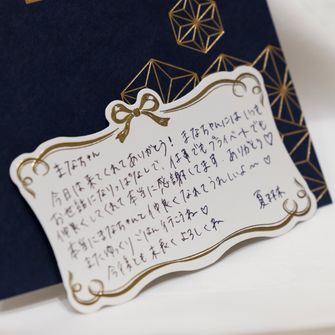 まなちゃん
今日は来てくれてありがとう！まなちゃんにはいつも
お世話になりっぱなしで、仕事でもプライベートでも
仲良くしてくれて本当に感謝してます。ありがとう♡
本当にまなちゃんと仲良くなれてうれしいよ〜♡
またゆっくりごはん行こうね♡
今後とも末永くよろしくね